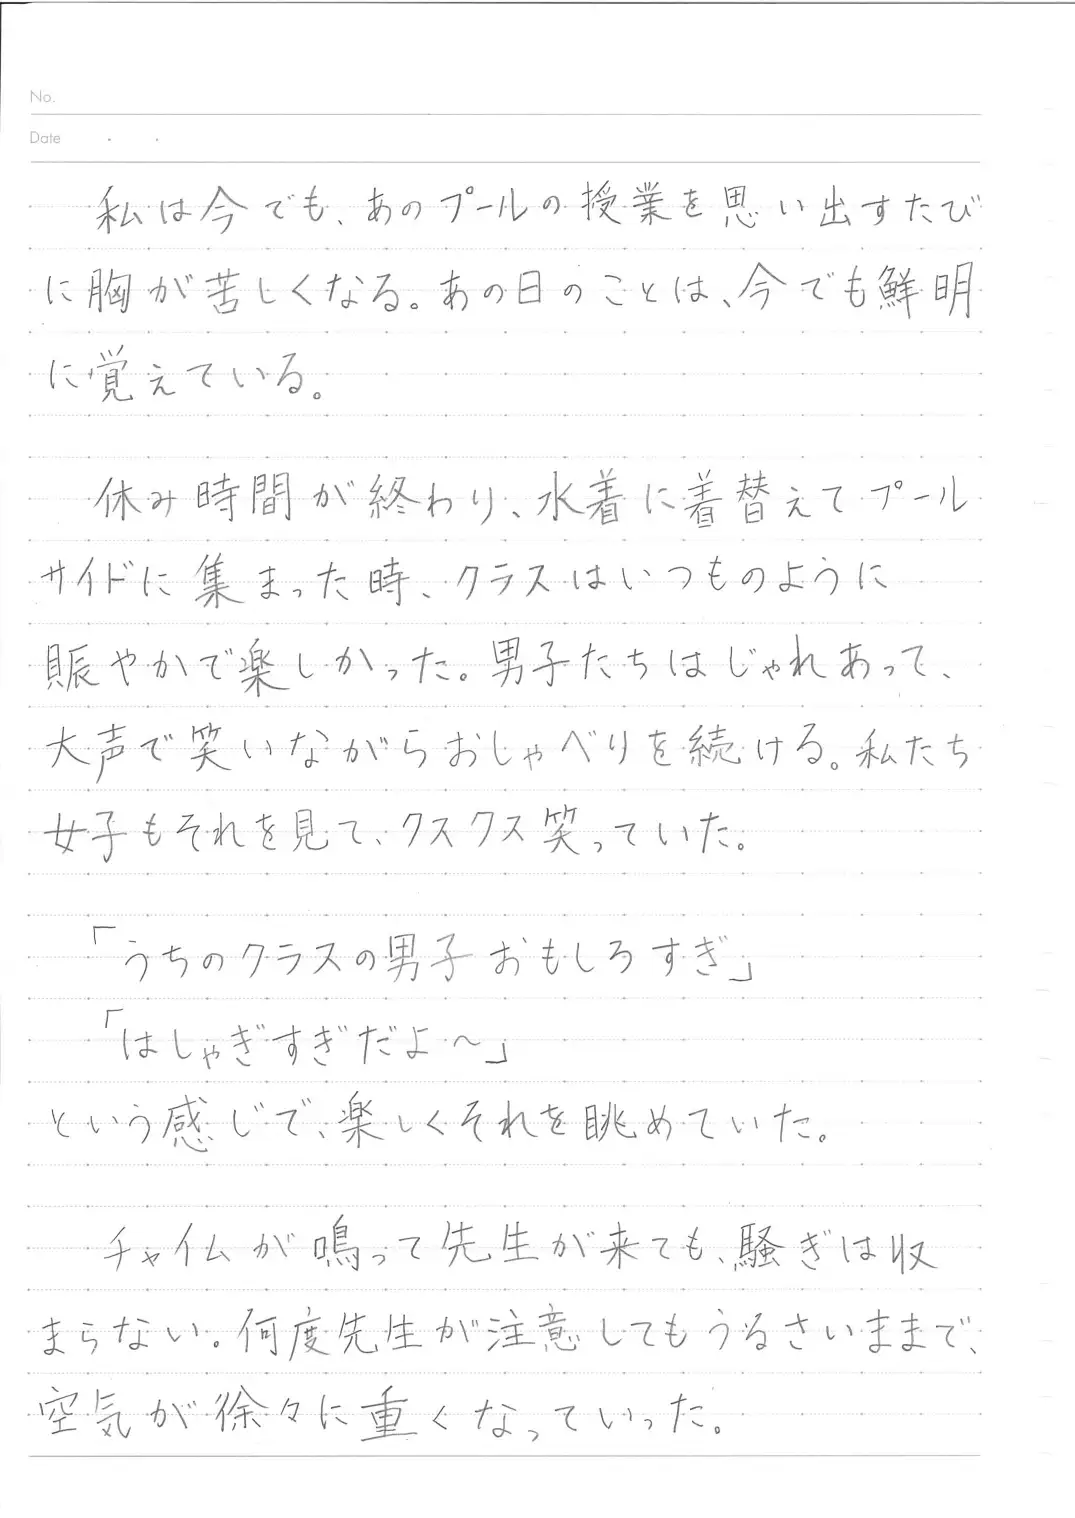 No.
Date
私は今でも、あのプールの授業を思い出すたび
に胸が苦しくなる。あの日のことは、今でも鮮明
に覚えている。
休み時間が終わり、水着に着替えてプール
サイドに集まった時、クラスはいつものように
賑やかで楽しかった。男子たちはじゃれあって、
大声で笑いながらおしゃべりを続ける。私たち
女子もそれを見て、クスクス笑っていた。
「うちのクラスの男子おもしろすぎ」
「はしゃぎすぎだよ〜」
という感じで、楽しくそれを眺めていた。
チャイムが鳴って先生が来ても、騒ぎは収
まらない。何度先生が注意してもうるさいままで、
空気が徐々に重くなっていった。